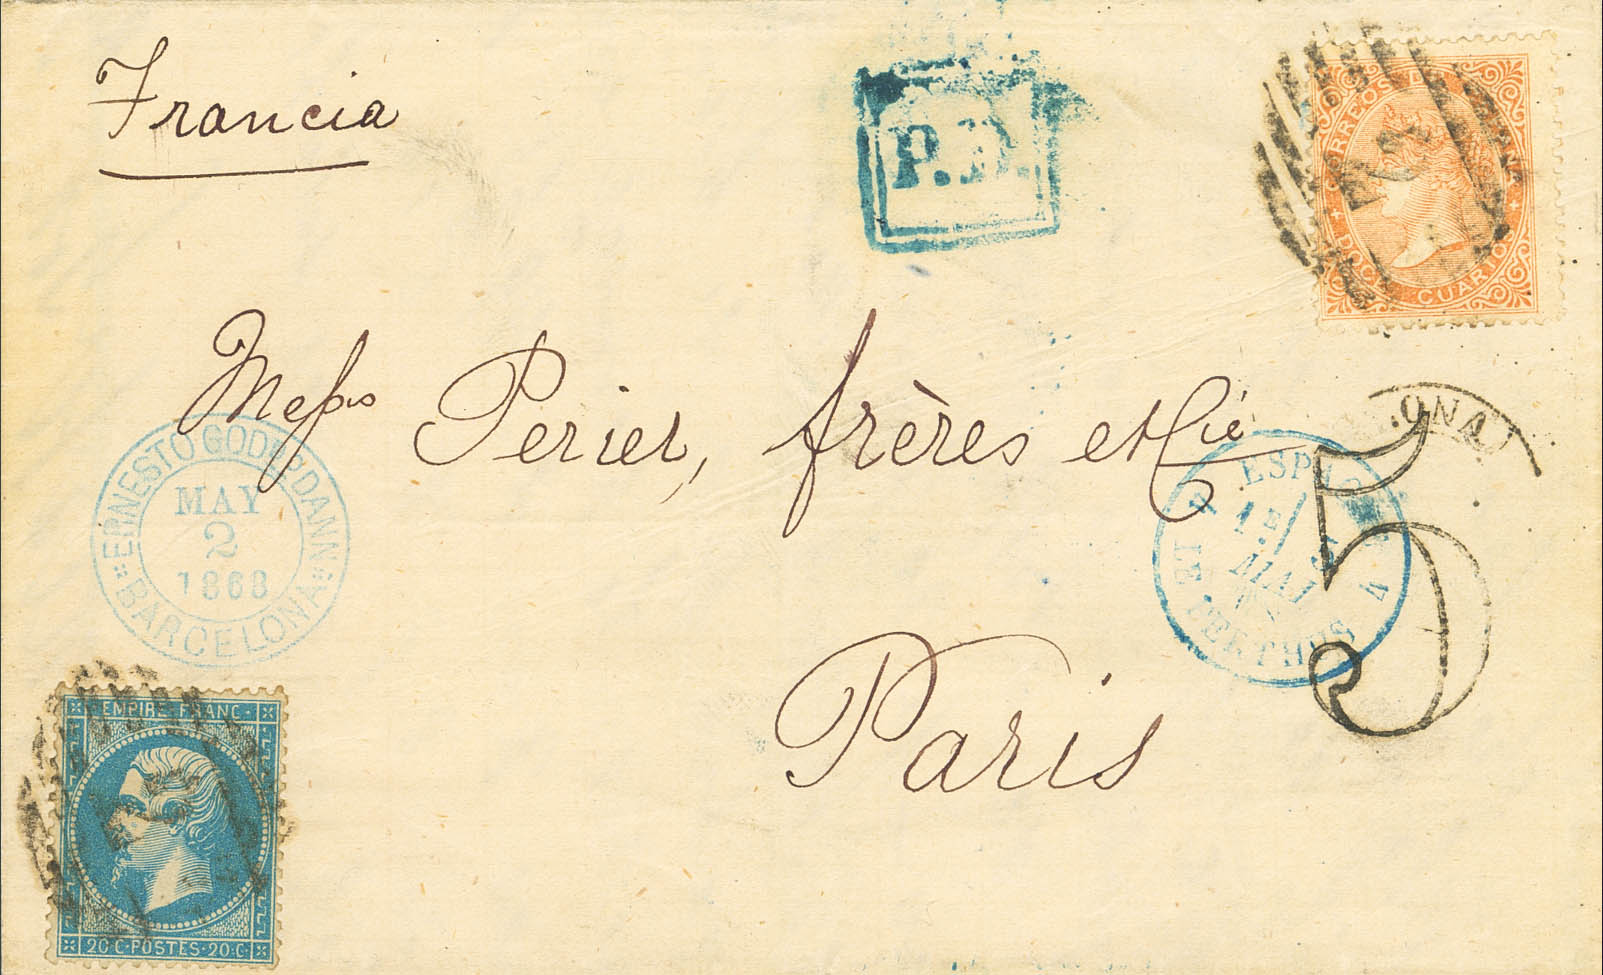 Francia
P.D.
CORREOS DE
DOCE CUARTOS
Mess Perier, frères et Cie
Paris
ERNESTO GODE DANN
MAY
2
1868
BARCELONA
ONA
5
ESP
4 4
MAI
LE PERTHUS
EMPIRE FRANC
20 C POSTES 20 C